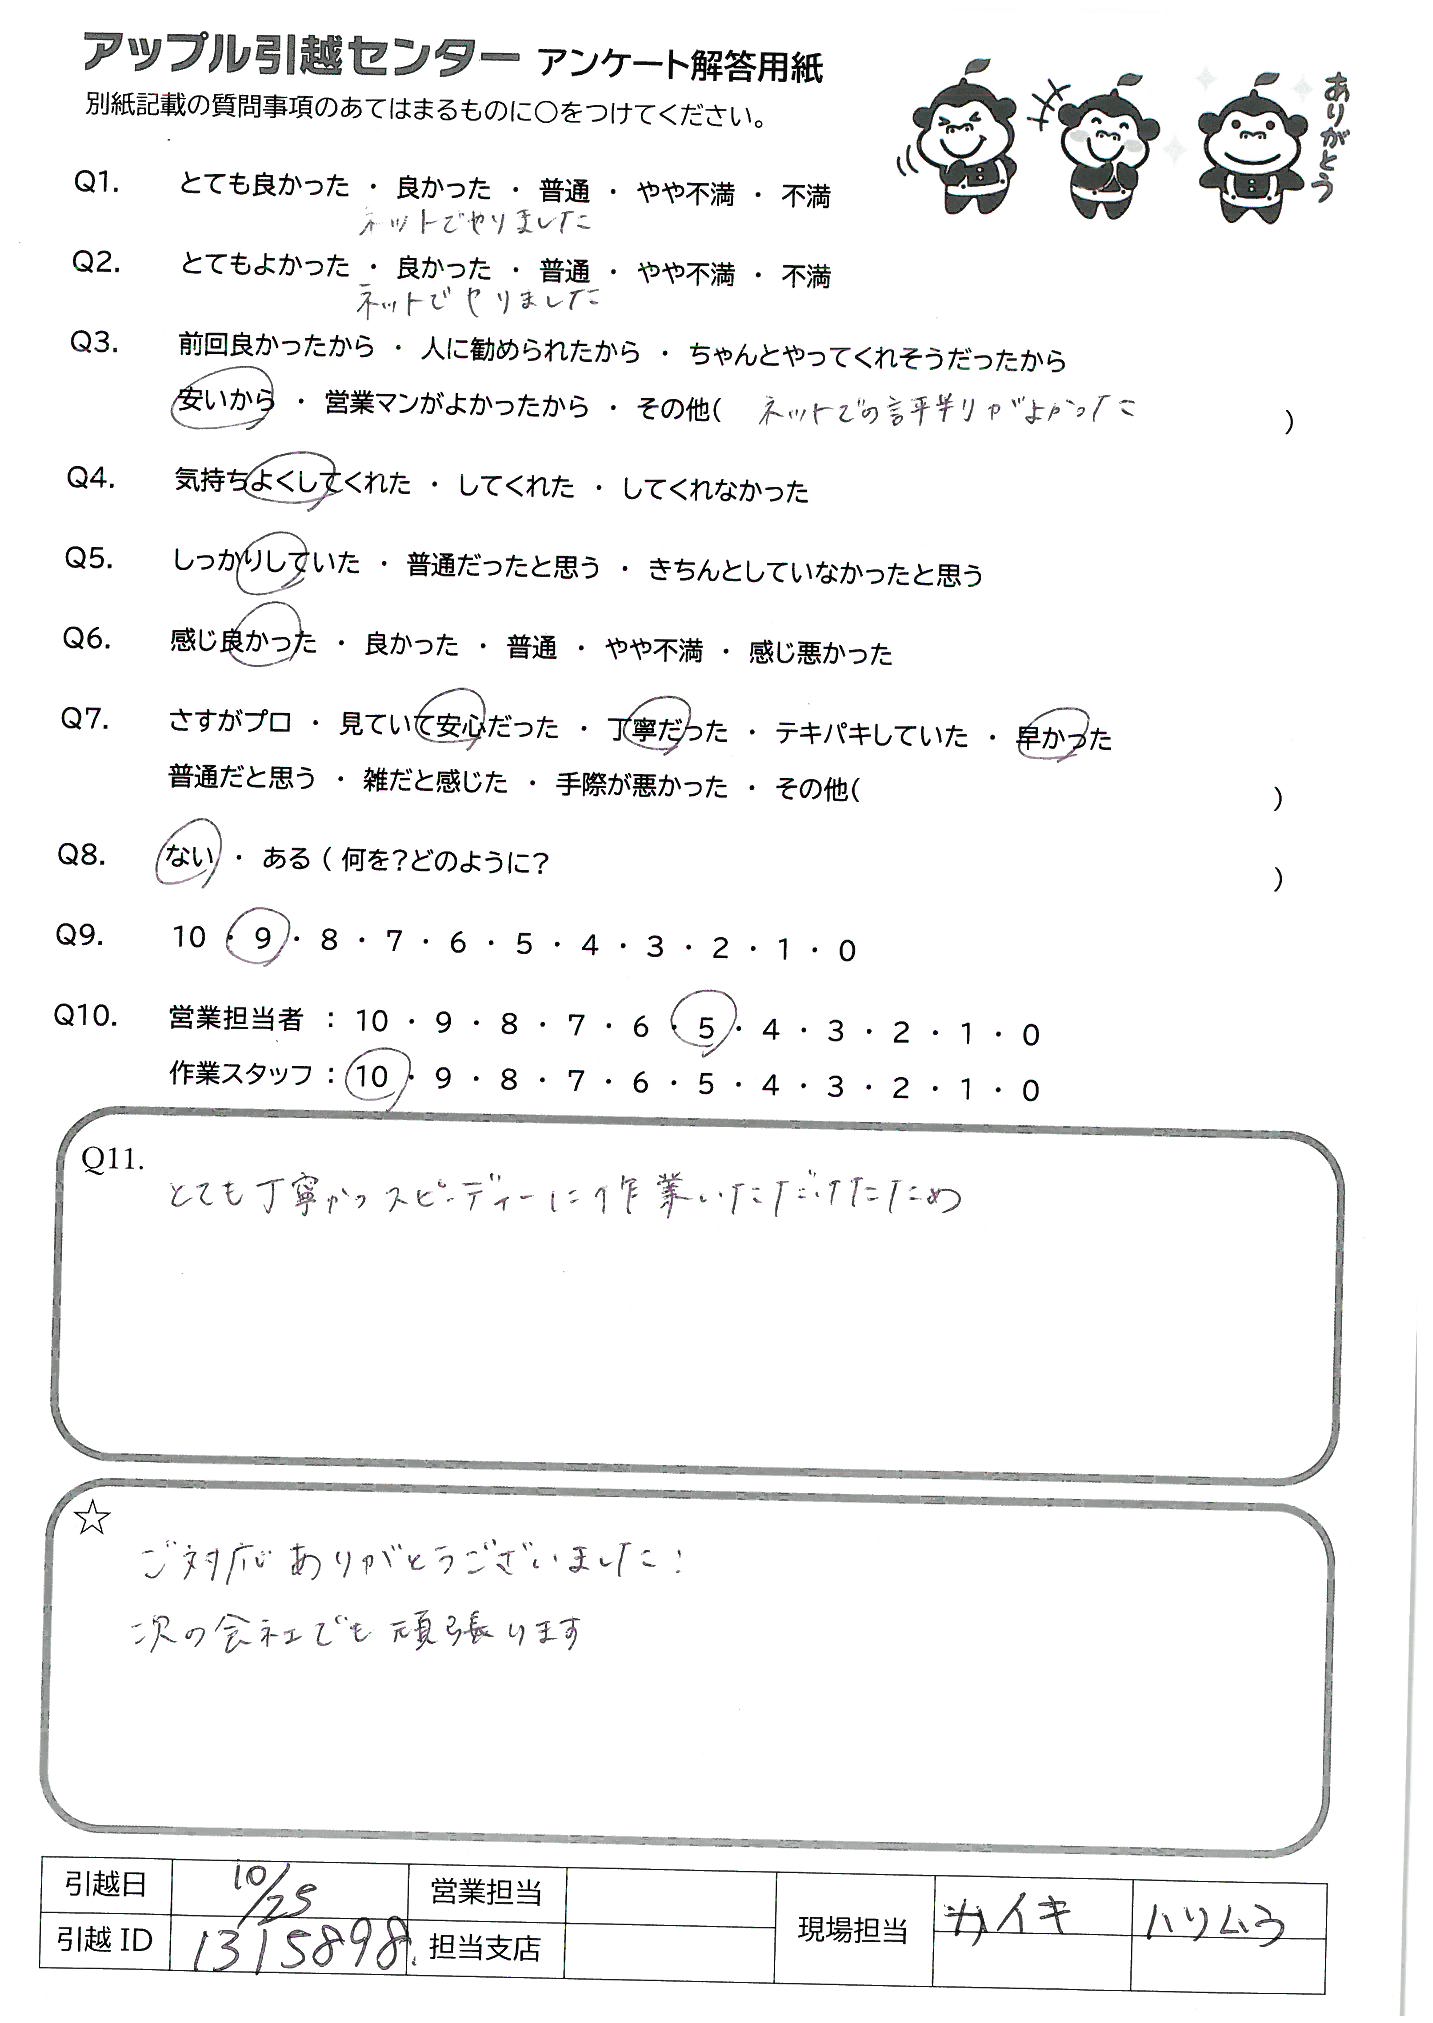 アップル引越センター アンケート解答用紙
ありがとう
別紙記載の質問事項のあてはまるものに○をつけてください。
Q1. とても良かった ・ 良かった ・ 普通 ・ やや不満 ・ 不満
ネットでやりました
Q2. とてもよかった ・ 良かった ・ 普通 ・ やや不満 ・ 不満
ネットでやりました
Q3. 前回良かったから ・ 人に勧められたから ・ ちゃんとやってくれそうだったから
安いから ・ 営業マンがよかったから ・ その他( ネットでの評判がよかった )
Q4. 気持ちよくしてくれた ・ してくれた ・ してくれなかった
Q5. しっかりしていた ・ 普通だったと思う ・ きちんとしていなかったと思う
Q6. 感じ良かった ・ 良かった ・ 普通 ・ やや不満 ・ 感じ悪かった
Q7. さすがプロ ・ 見ていて安心だった ・ 丁寧だった ・ テキパキしていた ・ 早かった
普通だと思う ・ 雑だと感じた ・ 手際が悪かった ・ その他( )
Q8. ない ・ ある ( 何を?どのように? )
Q9. 10 ・ 9 ・ 8 ・ 7 ・ 6 ・ 5 ・ 4 ・ 3 ・ 2 ・ 1 ・ 0
Q10. 営業担当者 : 10 ・ 9 ・ 8 ・ 7 ・ 6 ・ 5 ・ 4 ・ 3 ・ 2 ・ 1 ・ 0
作業スタッフ : 10 ・ 9 ・ 8 ・ 7 ・ 6 ・ 5 ・ 4 ・ 3 ・ 2 ・ 1 ・ 0
Q11.
とても丁寧かつスピーディーに作業いただけたため
☆
ご対応ありがとうございました!
次の会社でも頑張ります
引越日 10/25 営業担当 現場担当 カイキ
引越 ID 1315898 担当支店